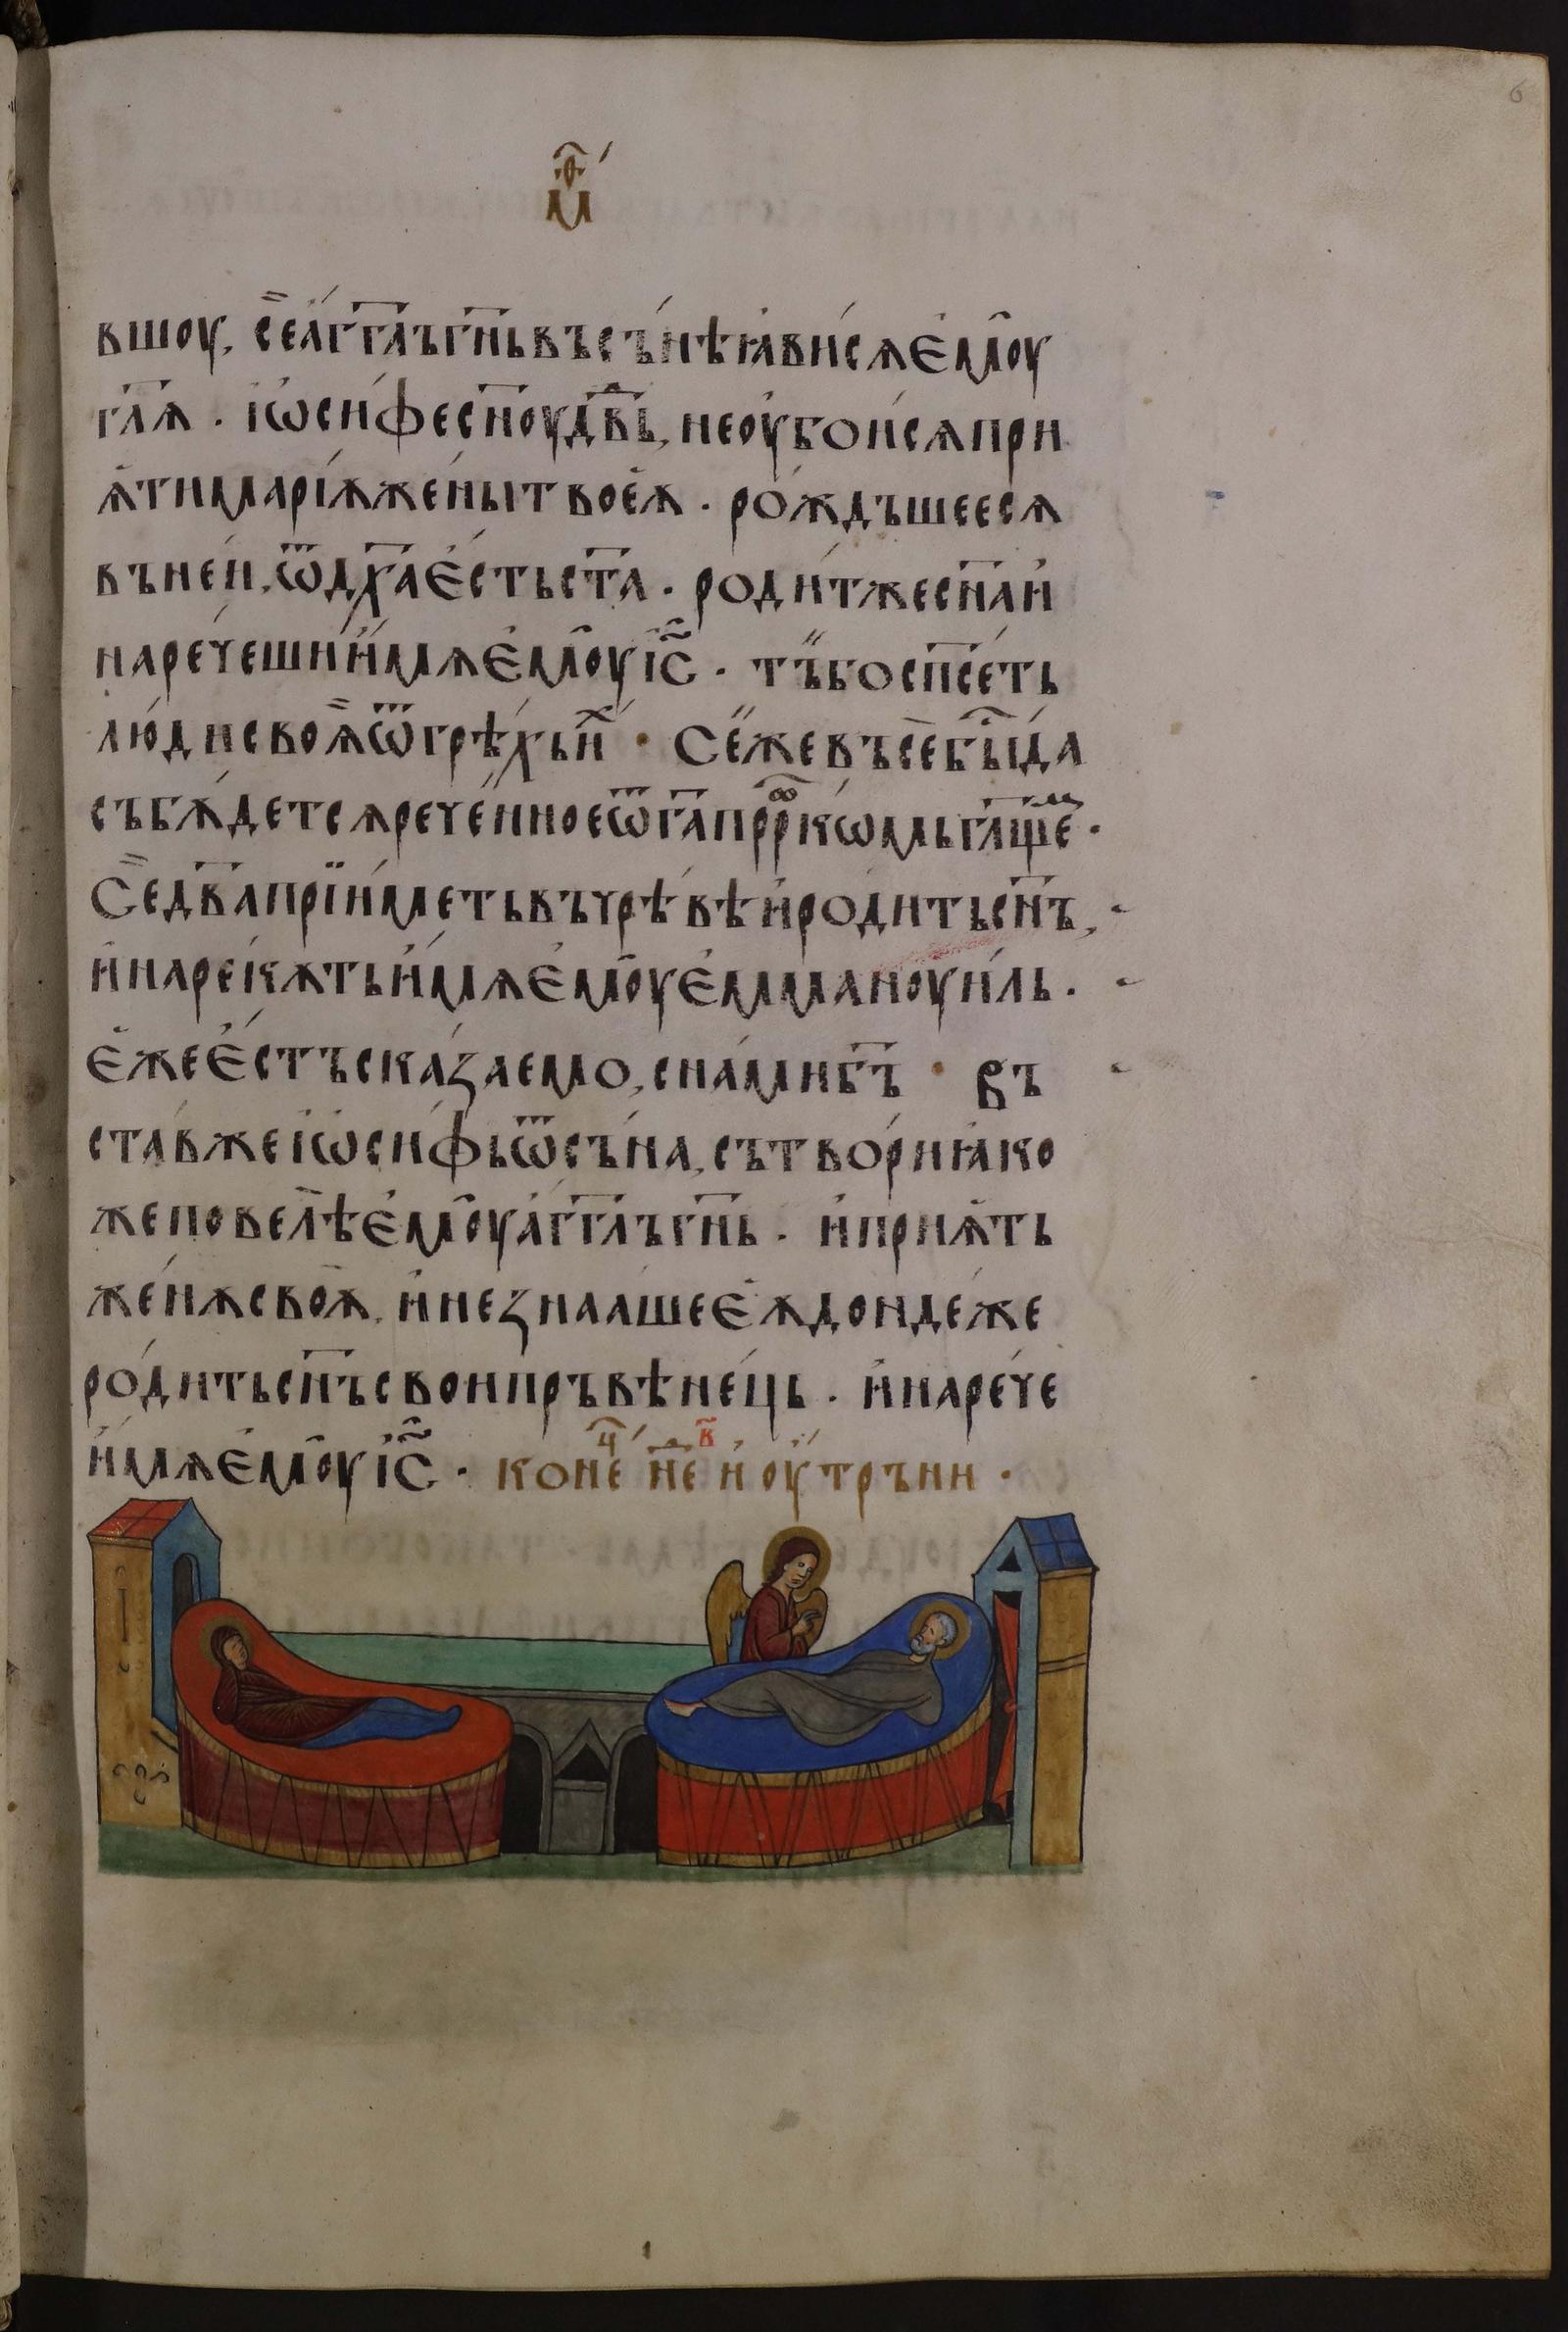 6
мѳ҃
вшоу, се́ а҆гг҃лъ гн҃ь въ съ́нѣ ꙗ҆ви́сѧ є҆моу҆
гл҃ѧ · і҆ѡси́фе сн҃оу дв҃ь, не оу҆бои́сѧ при
ѧ҆ти марі́ѫ жены́ твоеѧ҆ · ро́ждъшеесѧ
въ не́и, ѿ дх҃а є҆́сть ст҃а · роди́т же сн҃а и҆
наре́чеши и҆́мѧ є҆моу҆ і҆с҃ · тъ́ бо сп҃се́ть
лю́ди своѧ҆ ѿ грѣ́хь и҆х · Се́же въсе бы́ да
събѫ́детсѧ рече́нное ѿ г҃а прр҃кѡмь гл҃щем ·
Се́ дв҃а прїи́меть въ чрѣ́вѣ и҆ роди́ть сн҃ъ,
и҆ нареկѫть и҆́мѧ є҆моу҆ є҆ммануи́ль ·
є҆́же є҆́стъ сказаемо, с на́ми бг҃ъ · Въ
ста́вже і҆ѡси́фь ѿ съна, сътво́ри ꙗ҆ко
же повелѣ́ є҆моу҆ а҆гг҃лъ гн҃ь · и҆ приѧ҆́ть
же́нѫ своѫ҆, и҆ не знааше є҆ѫ дондеже
ро́дить сн҃ъ свои пръвѣне́ць · и҆ наре́че
и҆́мѧ є҆моу҆ і҆с҃ · коне ч нє в҃ и҆ оу҆трънн ·